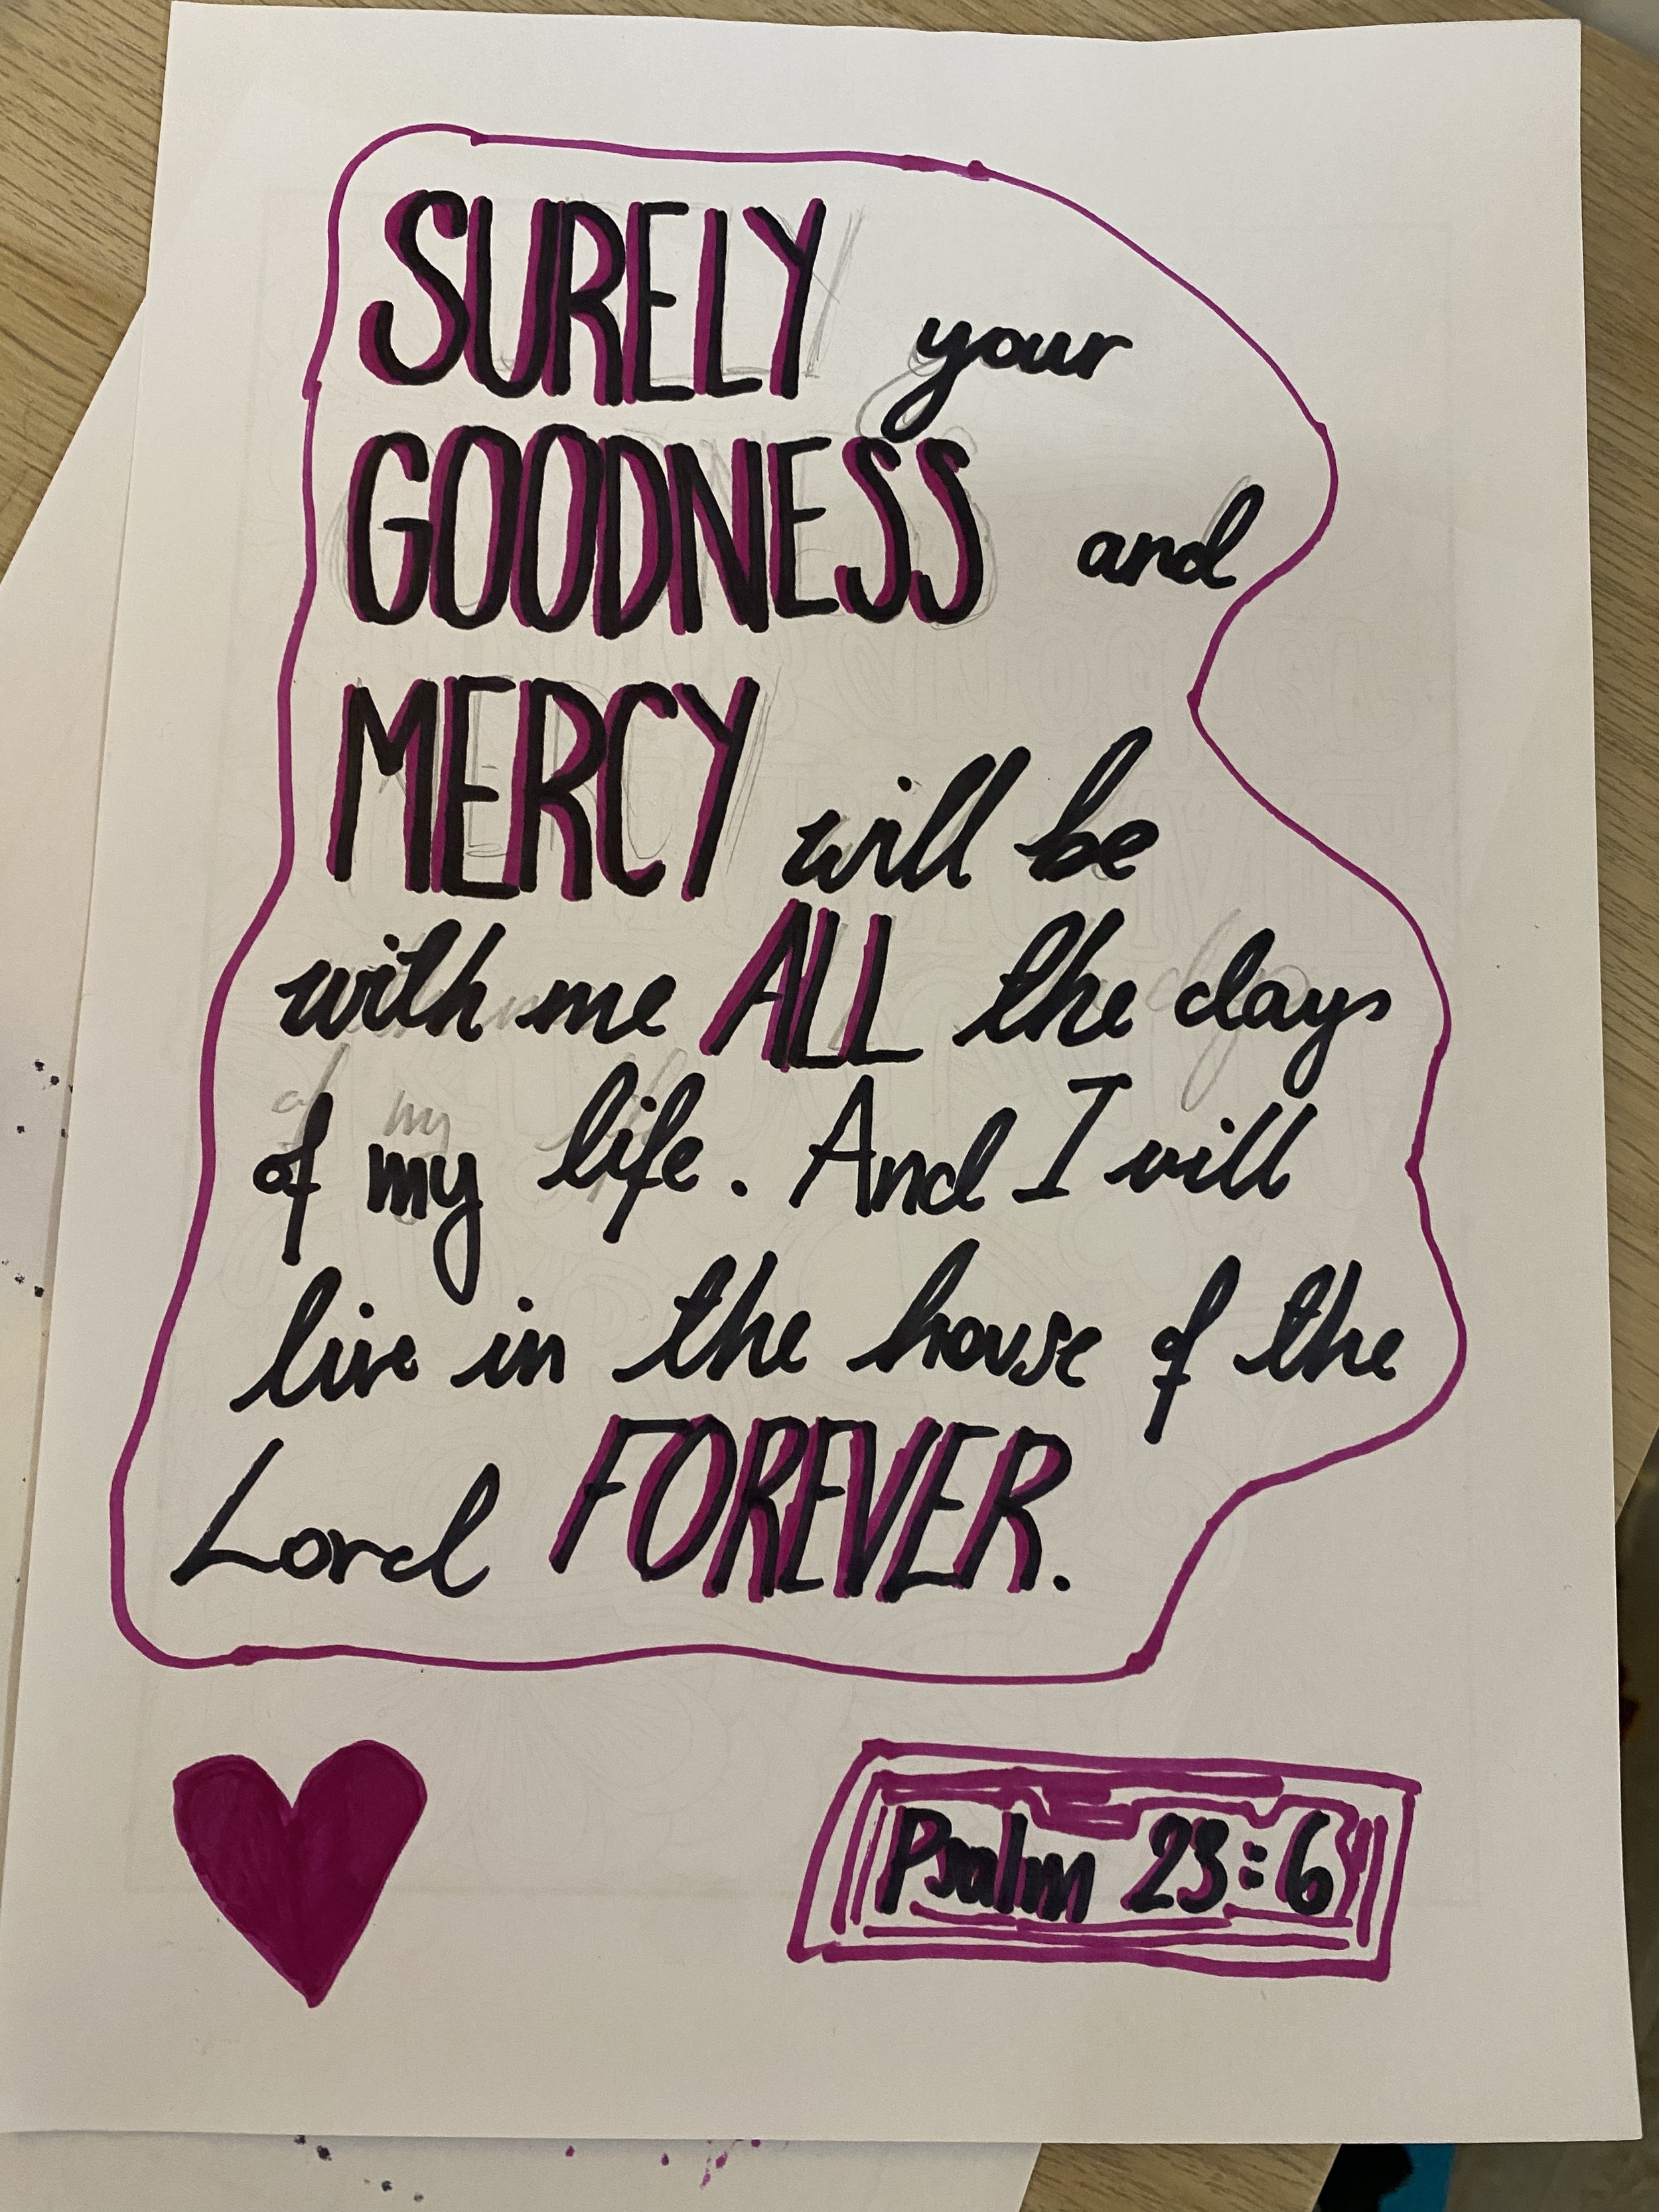 SURELY your
GOODNESS and
MERCY will be
with me ALL the days
of my life. And I will
live in the house of the
Lord FOREVER.
Psalm 23:6